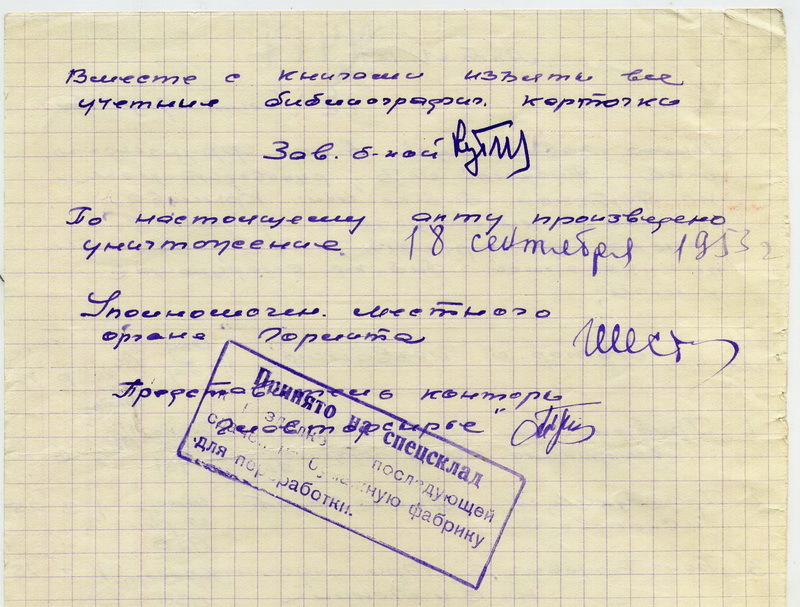 Вместе с книгами изъяты все
учетные библиографич. карточки
Зав. б-кой
По настоящему акту произведено
уничтожение 18 сентября 1953 г
Уполномочен. местного
органа Горлита
Представитель конторы
"Главвторсырье"
Принято на спецсклад
последующей
сдачей на бумажную фабрику
для переработки.